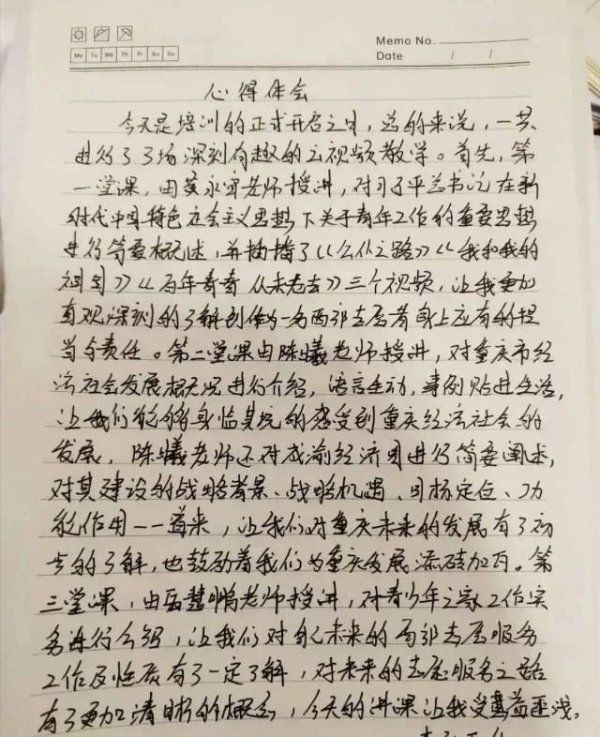 Memo No.
Date / /
Mo Tu We Th Fr Sa Su
心得体会
今天是培训的正式开启之日，总的来说，一共
进行了3场深刻有趣的云视频教学。首先，第
一堂课，由黄永宜老师授讲，对习近平总书记在新
时代中国特色社会主义思想下关于青年工作的重要思想
进行简要概述，并播搐了《公仆之路》《我和我的
祖国》《百年青春 从未老去》三个视频，让我更加
直观深刻的了解到作为一名西部志愿者身上应有的担
当与责任。第二堂课由陈曦老师授讲，对重庆市经
济社会发展概况进行介绍，语言生动，事例贴进生活，
让我们能够身临其境的感受到重庆经济社会的
发展，陈曦老师还对成渝经济圈进行简要阐述，
对其建设的战略背景、战略机遇、目标定位、功
能作用一一道来，让我们对重庆未来的发展有了初
步的了解，也鼓励着我们为重庆发展添砖加瓦。第
三堂课，由岳慧鹏老师授讲，对青少年之家工作实
务进行介绍，让我们对自己未来的西部志愿服务
工作及性质有了一定了解，对未来的志愿服务之路
有了更加清晰的概念，今天的讲课让我受益匪浅。